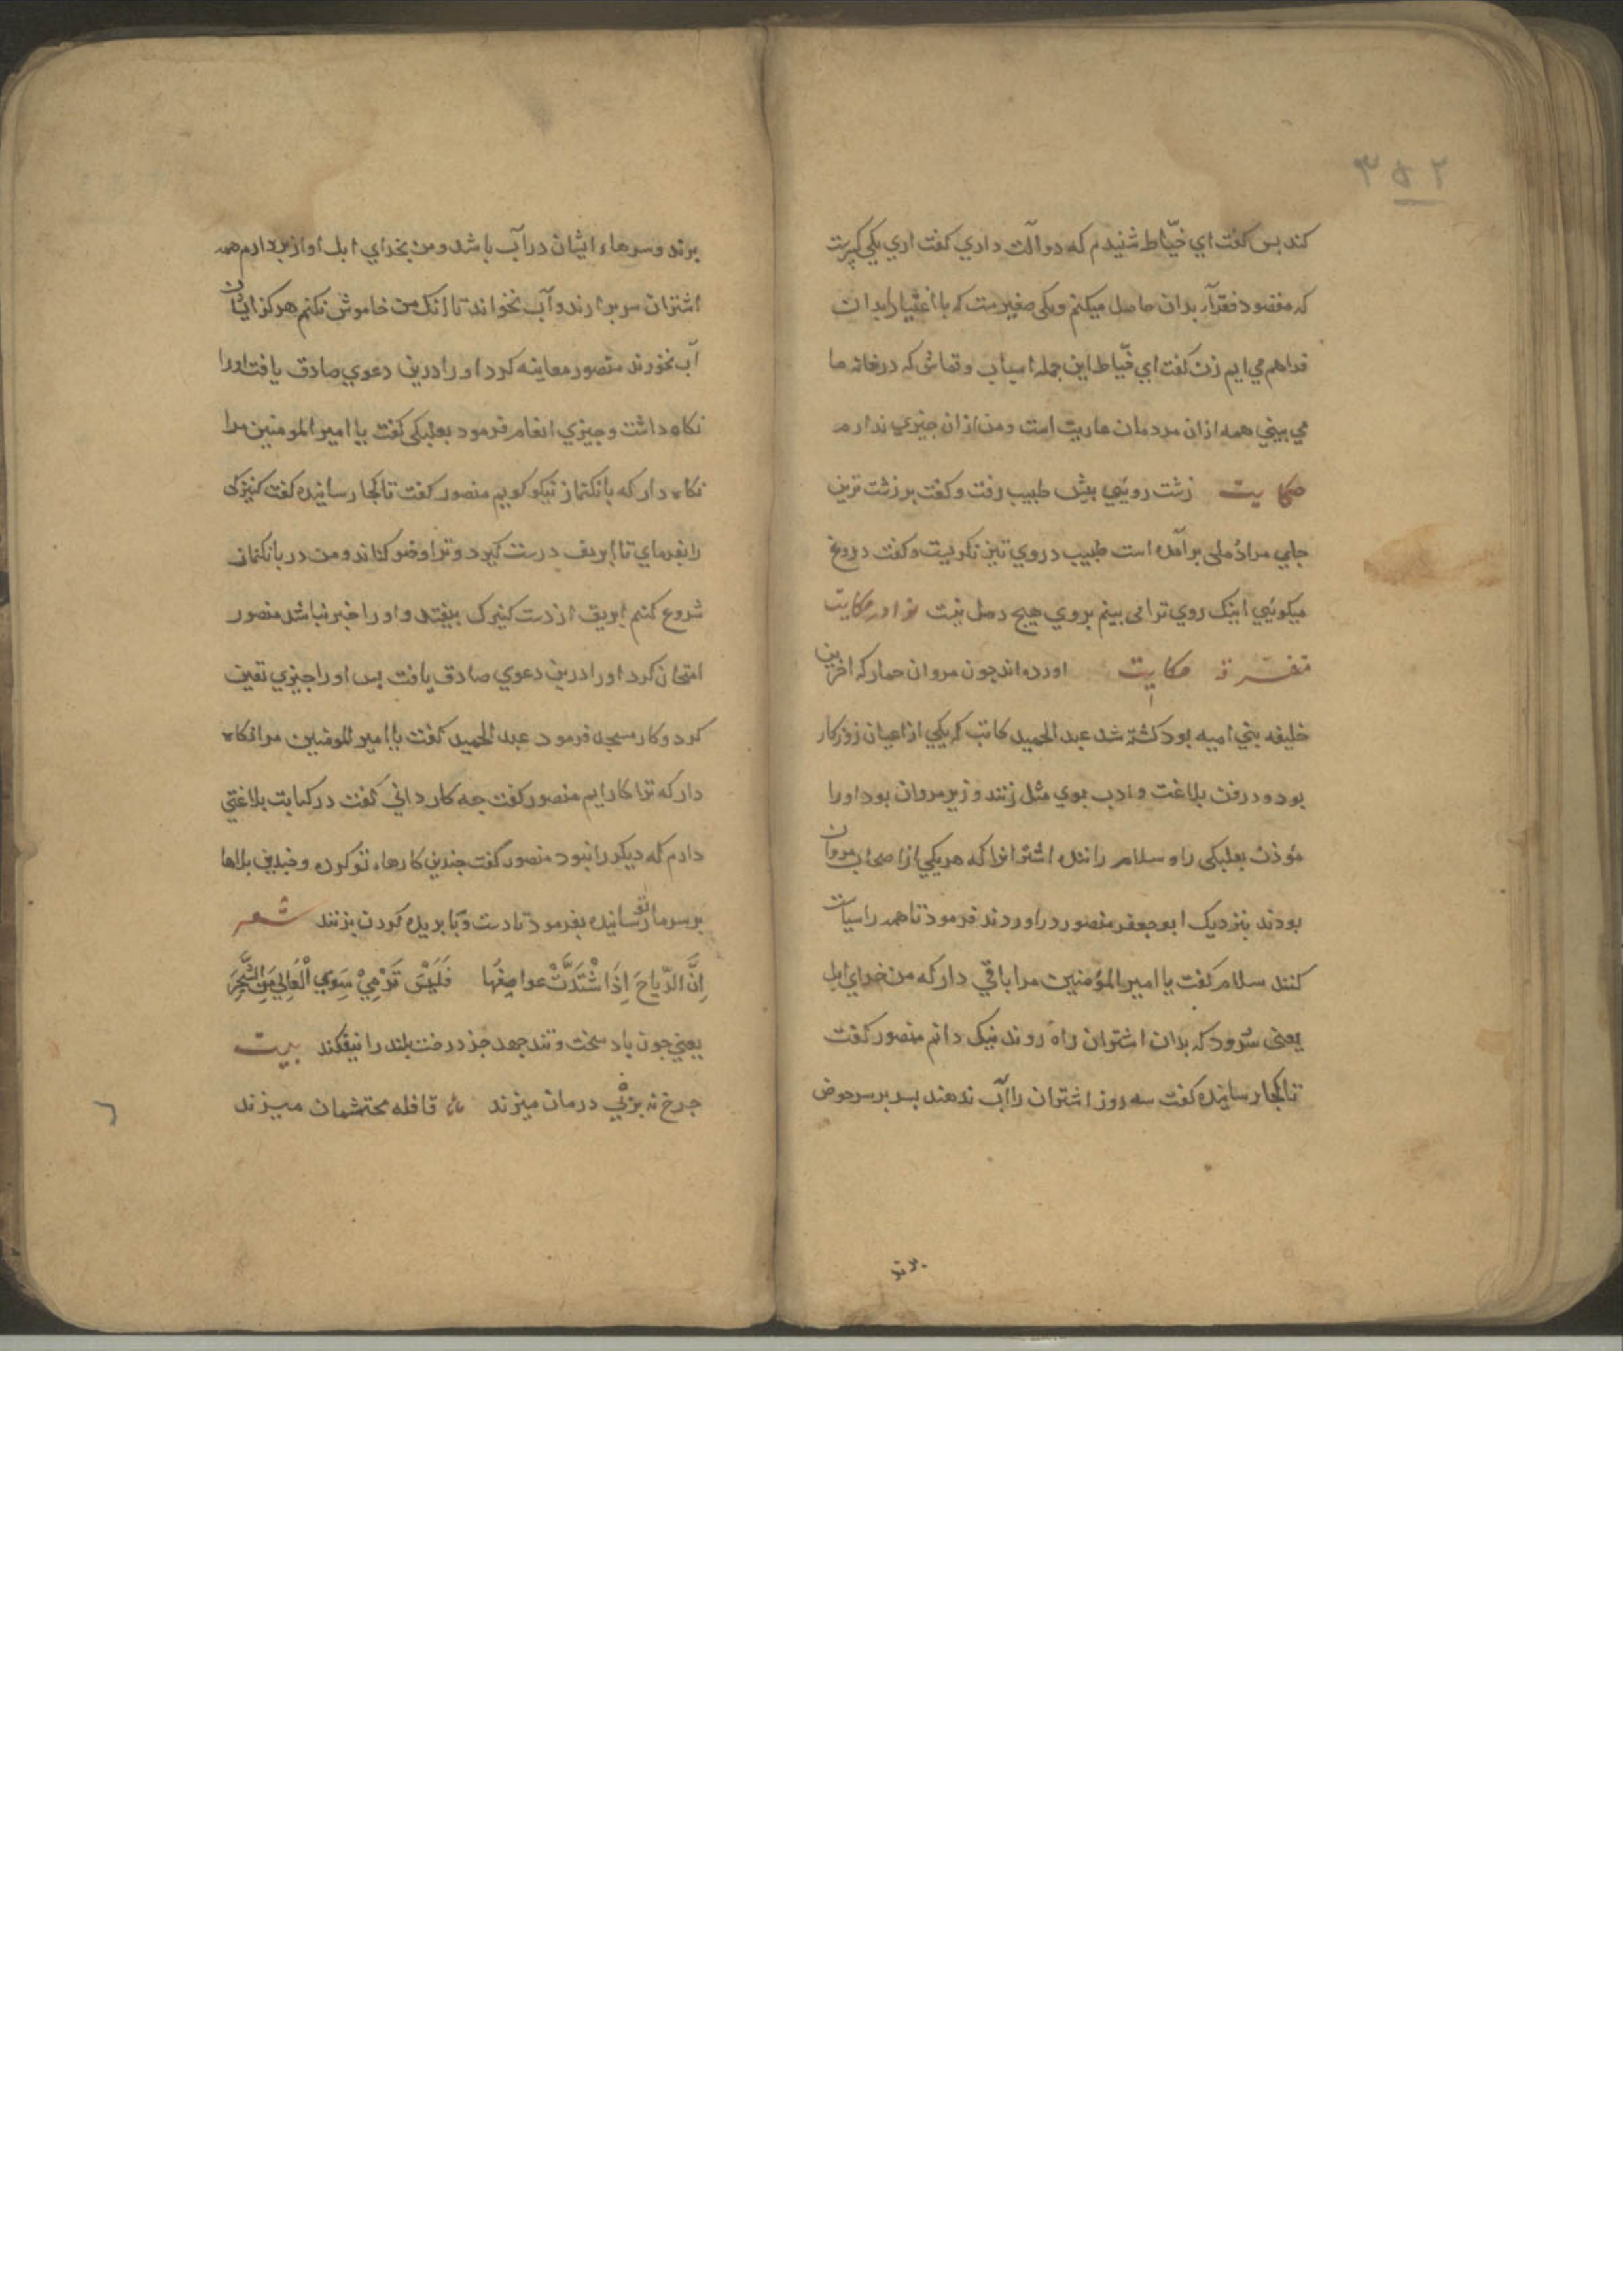 ۳۵۲
کند بس کفت ای خیّاط شنیدم که دو آلت داري کفت اري یکي کبیرست
که مقصود فقرآء بدان حاصل میکنم ویکی صغیرست که با اغنیا را بدان
فراهم مي ایم زن کفت اي خیّاط این جمله اسباب وقماش که در خانه ما
مي بیني همه ازان مردمان عاریت است ومن ازان جیزي ندارم
حکایت زشت رویي بیش طبیب رفت وکفت بر زشت ترین
جاي مرا دُملی برآمده است طبیب در روي تیز نکریست وکفت دروغ
میکویي اینک روي ترا می بینم بروي هیج دمل نیست نوادر حکایت
متفرقه حکایت اورده اند جون مروان حمار که اخرین
خلیفه بني امیه بود کشته شد عبد الحمید کاتب که یکي از اعیان روزکار
بود ودر فن بلاغت وادب بوي مثل زنند وزیر مروان بود اورا
مؤذن بعلبکی راه وسلام رانندۀ اشترانرا که هریکي از اصحاب مروان
بودند بنزدیک ابو جعفر منصور دراوردند فرمود تا همه را سیاست
کنند سلام کفت یا امیر المؤمنین مرا باقي دار که من خداي ابل
یعنی سرود که بدان اشتران راه روند نیک دانم منصور کفت
تا کجا رسانیدۀ کفت سه روز اشتران را آب ندهند بس بر سر حوض
برند
برند وسرهاء ایشان در آب باشد ومن بخداي ابل اواز بردارم همه
اشتران سر برارند وآب نخواند تا انک من خاموش نکنم هرکز ایشان
آب نخورند منصور معاینه کرد اورا درین دعوي صادق یافت اورا
نکاه داشت وجیزي انعام فرمود بعلبکی کفت یا امیر المومنین مرا
نکاه دار که بانکنماز نیکو کویم منصور کفت تا کجا رسانیدۀ کفت کنیزکی
را بفرماي تا ابریق درست کیرد وترا وضو کناند ومن در بانکنماز
شروع کنم ابریق از دست کنیزک بیفتد واورا خبر نباشد منصور
امتحان کرد اورا درین دعوي صادق یافت بس اورا جیزي تعین
کرد وکار مسجد فرمود عبد الحمید کفت یا امیر المومنین مرا نکاه
دار که ترا کار ایم منصور کفت جه کار داني کفت در کتابت بلاغتي
دارم که دیکر را نبود منصور کفت جندین کارهاء تو کرده وجندین بلاها
بر سر ما تو رسانیدۀ بفرمود تا دست وبا بریده کردن بزنند شعر
اِنَّ الرِّیَاحَ اِذَا اشْتَدَّتْ عواصِفُها فَلَیْسَ تَرْمِيْ سِوَی الْعَالِي مِنَ الشَّجَرَ
یعني جون باد سخت وتند جهد جز درخت بلند را نیفکند بیت
جرخ نه بر بي درمان میزند قافله محتشمان میزند